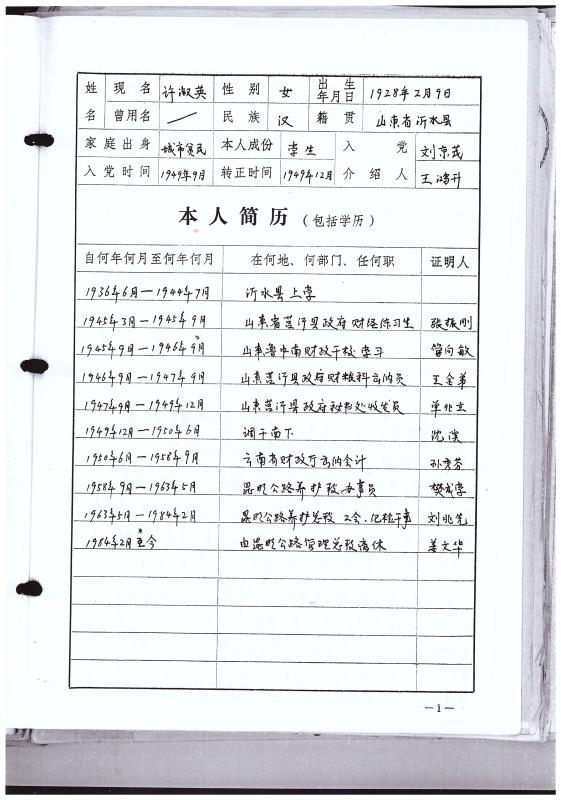 姓 现名 许淑英 性别 女 出生年月日 1928年2月9日
名 曾用名 / 民族 汉 籍贯 山东省沂水县
家庭出身 城市贫民 本人成份 学生 入党 刘京茂
入党时间 1949年9月 转正时间 1949年12月 介绍人 王鸿升
本人简历(包括学历)
自何年何月至何年何月 在何地、何部门、任何职 证明人
1936年6月—1944年7月 沂水县上学
1945年3月—1945年9月 山东省莒沂县政府财经练习生 张振刚
1945年9月—1946年9月 山东鲁中南财政干校学习 管向敏
1946年9月—1947年9月 山东莒沂县政府财粮科出纳员 王金弟
1947年9月—1949年12月 山东莒沂县政府秘书处收发员 单兆玄
1949年12月—1950年6月 调干南下 沈溪
1950年6月—1958年9月 云南省财政厅出纳会计 孙秀芬
1958年9月—1963年5月 昆明公路养护段办事员 樊成学
1963年5月—1984年2月 昆明公路养护总段工会、纪检干事 刘兆先
1984年2月至今 由昆明公路管理总段离休 姜文华
—1—